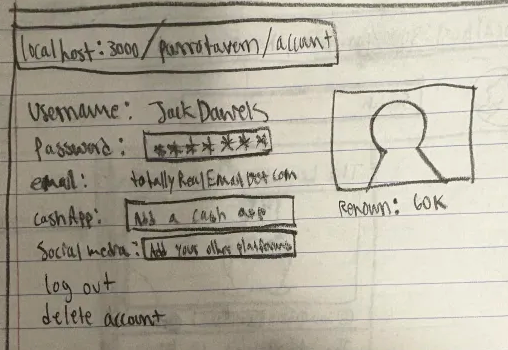 localhost:3000/parrotavern/account
Username: Jack Daniels
Password: *******
email: totallyRealEmailDotcom
cashApp: Add a cash app
Social media: Add your other platforms
Renown: 60K
log out
delete account